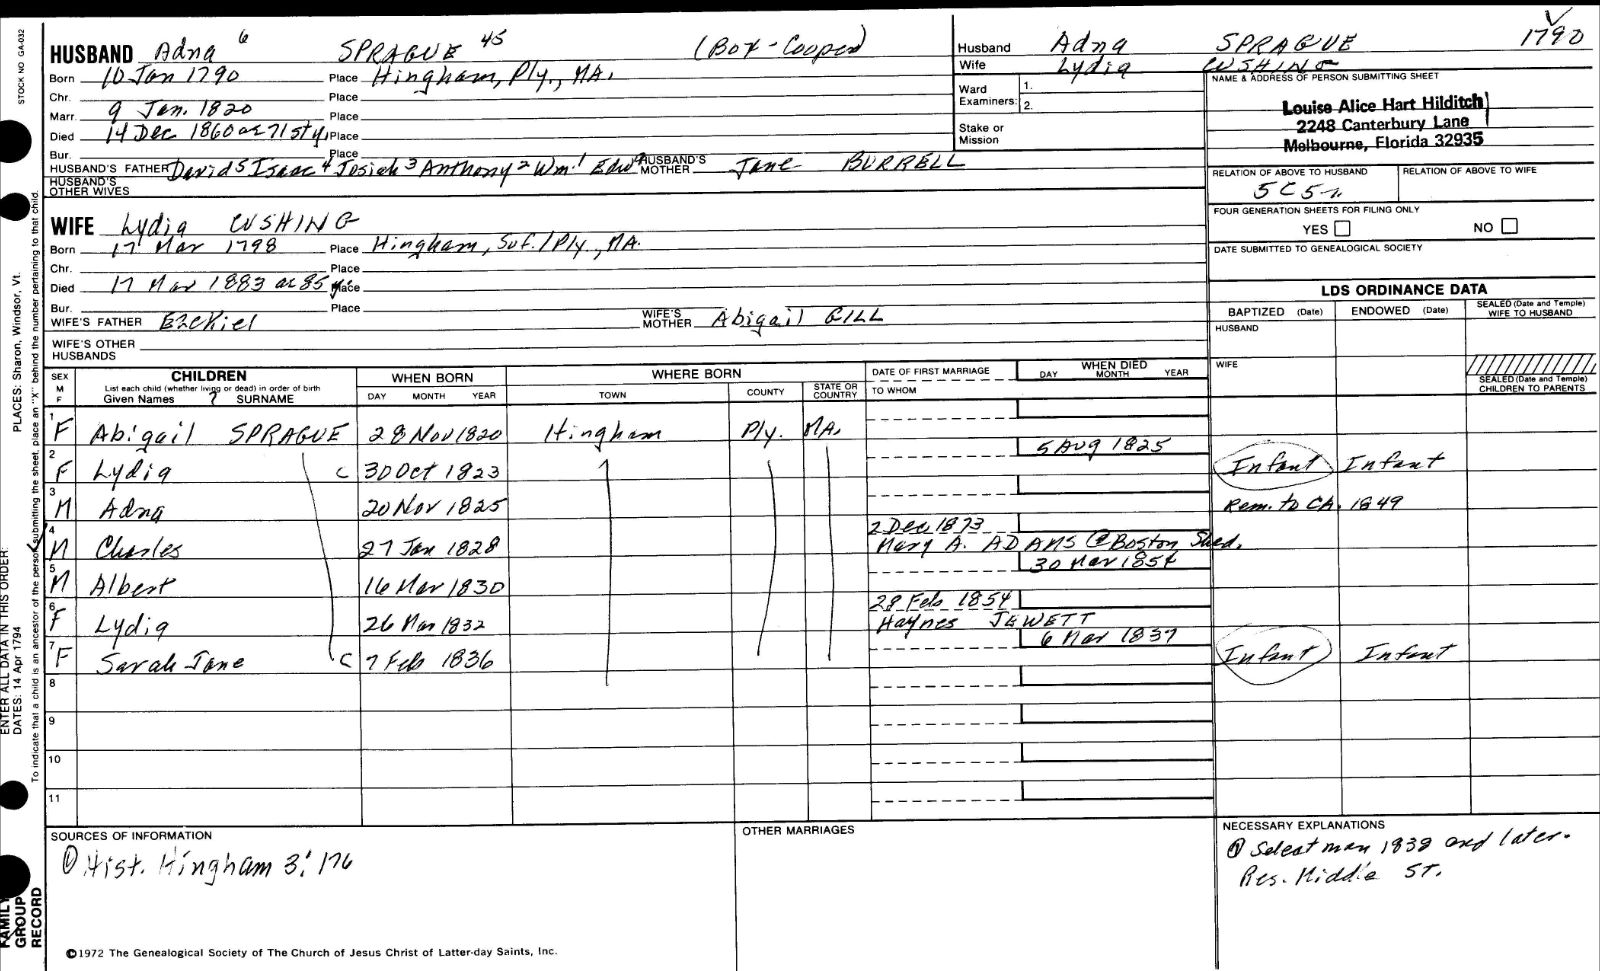 STOCK NO GA-032
HUSBAND Adna 6 SPRAGUE 45 (Box-Cooper)
Born 10 Jan 1790 Place Hingham, Ply., MA.
Chr. Place
Marr. 9 Jan. 1820 Place
Died 14 Dec 1860 ae 71st y, Place
Bur. Place
HUSBAND'S FATHER David 5 Isaac 4 Josiah 3 Anthony 2 Wm 1 Edw HUSBAND'S MOTHER Jane BURRELL
HUSBAND'S OTHER WIVES
WIFE Lydia CUSHING
Born 17 Mar 1798 Place Hingham, Suf./Ply., MA.
Chr. Place
Died 17 Mar 1883 ae 85 y. Place
Bur. Place
WIFE'S FATHER Ezekiel WIFE'S MOTHER Abigail GILL
WIFE'S OTHER HUSBANDS
Husband Adna SPRAGUE 1790
Wife Lydia CUSHING
Ward Examiners: 1.
2.
Stake or Mission
NAME & ADDRESS OF PERSON SUBMITTING SHEET
Louise Alice Hart Hilditch
2248 Canterbury Lane
Melbourne, Florida 32935
RELATION OF ABOVE TO HUSBAND RELATION OF ABOVE TO WIFE
5C5r
FOUR GENERATION SHEETS FOR FILING ONLY
YES NO
DATE SUBMITTED TO GENEALOGICAL SOCIETY
LDS ORDINANCE DATA
BAPTIZED (Date) ENDOWED (Date) SEALED (Date and Temple) WIFE TO HUSBAND
HUSBAND
WIFE
SEALED (Date and Temple) CHILDREN TO PARENTS
SEX M F CHILDREN WHEN BORN WHERE BORN DATE OF FIRST MARRIAGE WHEN DIED
List each child (whether living or dead) in order of birth DAY MONTH YEAR TOWN COUNTY STATE OR COUNTRY TO WHOM DAY MONTH YEAR
Given Names SURNAME
1 F Abigail SPRAGUE 28 Nov 1820 Hingham Ply. MA.
2 F Lydia C 30 Oct 1823 5 Aug 1825 Infant Infant
3 M Adna 20 Nov 1825 Rem. to CA. 1849
4 M Charles 27 Jan 1828 2 Dec 1873 Mary A. ADAMS @ Boston
5 M Albert 16 Mar 1830 30 Mar 1854
6 F Lydia 26 Mar 1832 28 Feb 1854 Haynes JEWETT
7 F Sarah Jane C 7 Feb 1836 6 Mar 1837 Infant Infant
8
9
10
11
SOURCES OF INFORMATION
① Hist. Hingham 3:176
OTHER MARRIAGES
NECESSARY EXPLANATIONS
① Selectman 1838 and later.
Res. Middle St.
©1972 The Genealogical Society of The Church of Jesus Christ of Latter-day Saints, Inc.
PLACES: Sharon, Windsor, Vt.
ENTER ALL DATA IN THIS ORDER:
DATES: 14 Apr 1794
To indicate that a child is an ancestor of the person submitting the sheet, place an "X" behind the number pertaining to that child.
FAMILY GROUP RECORD